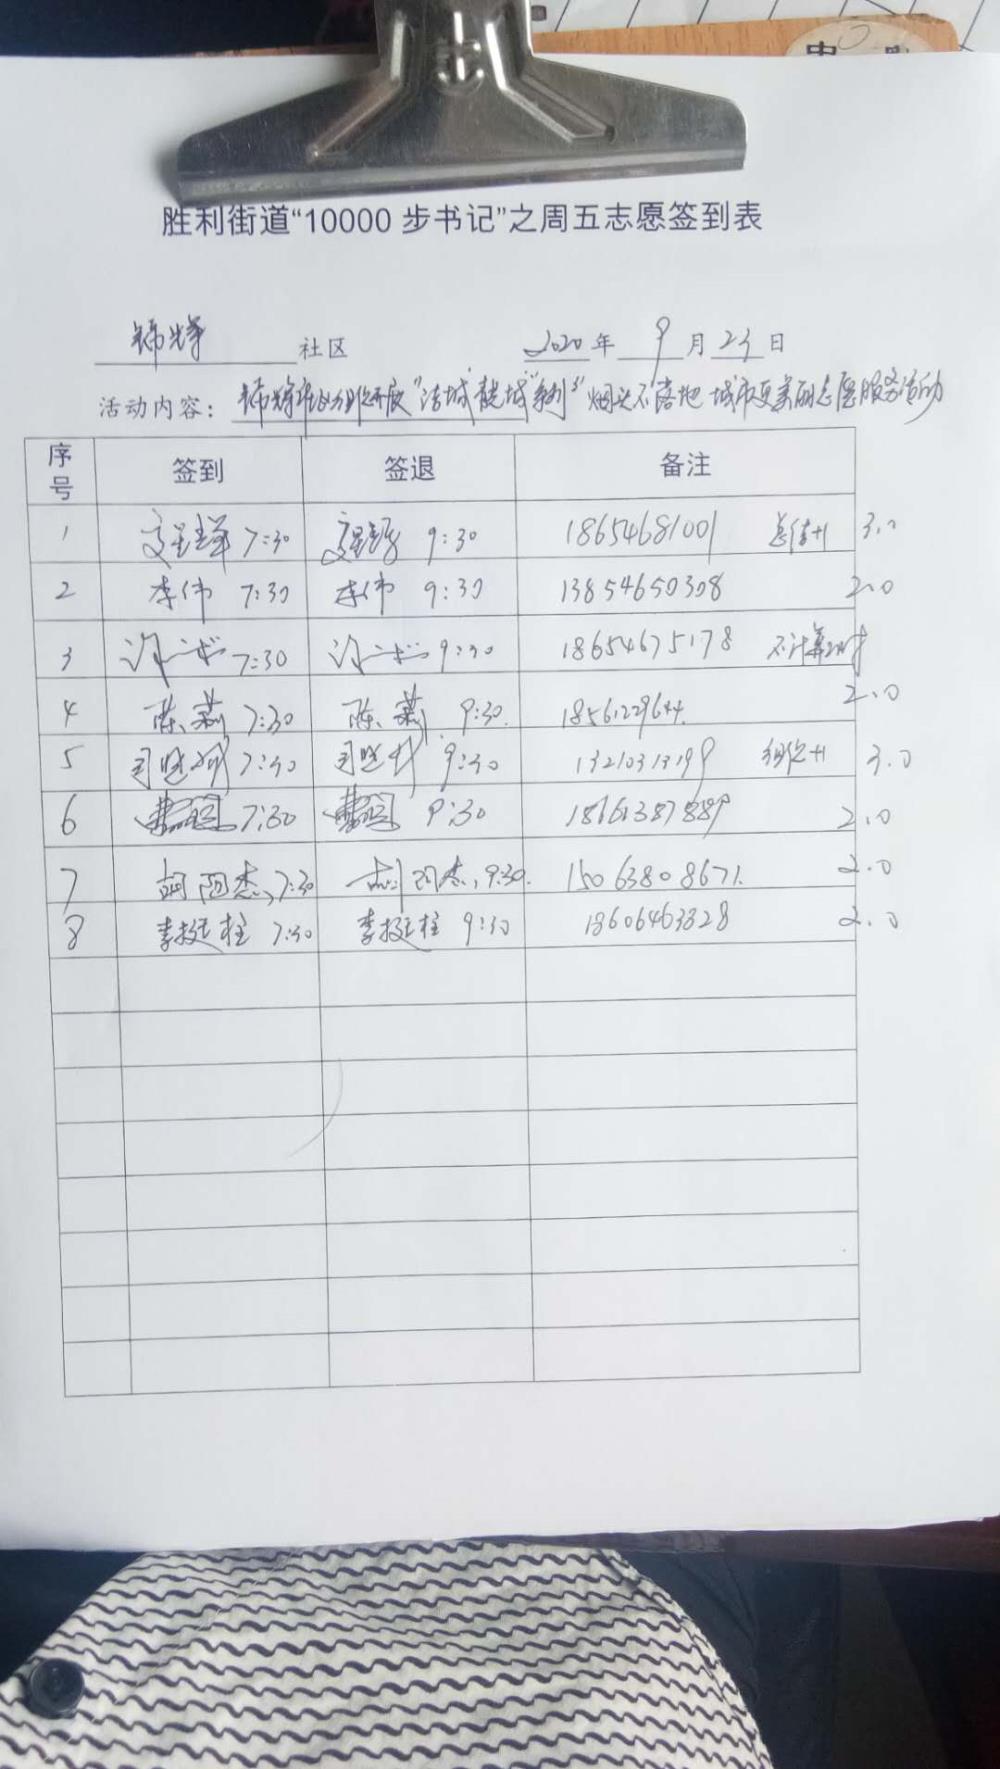 胜利街道“10000 步书记”之周五志愿签到表
锦辉 社区 2020 年 9 月 23 日
活动内容: 锦辉社区开展“洁城靓城”系列“烟头不落地 城市更美丽志愿服务活动
序号 签到 签退 备注
1 7:30 9:30 18654681001 3.0
2 李伟 7:30 李伟 9:30 13854650308 2.0
3 7:30 9:30 18654675178 不计算
4 陈莉 7:30 陈莉 9:30. 1856129644. 2.0
5 7:30 9:30 13210313199 3.0
6 7:30 9:30 18661387889 2.0
7 胡阿杰, 7:30 胡阿杰, 9:30. 15063808671. 2.0
8 李挺柱 7:30 李挺柱 9:30 18606463328 2.0